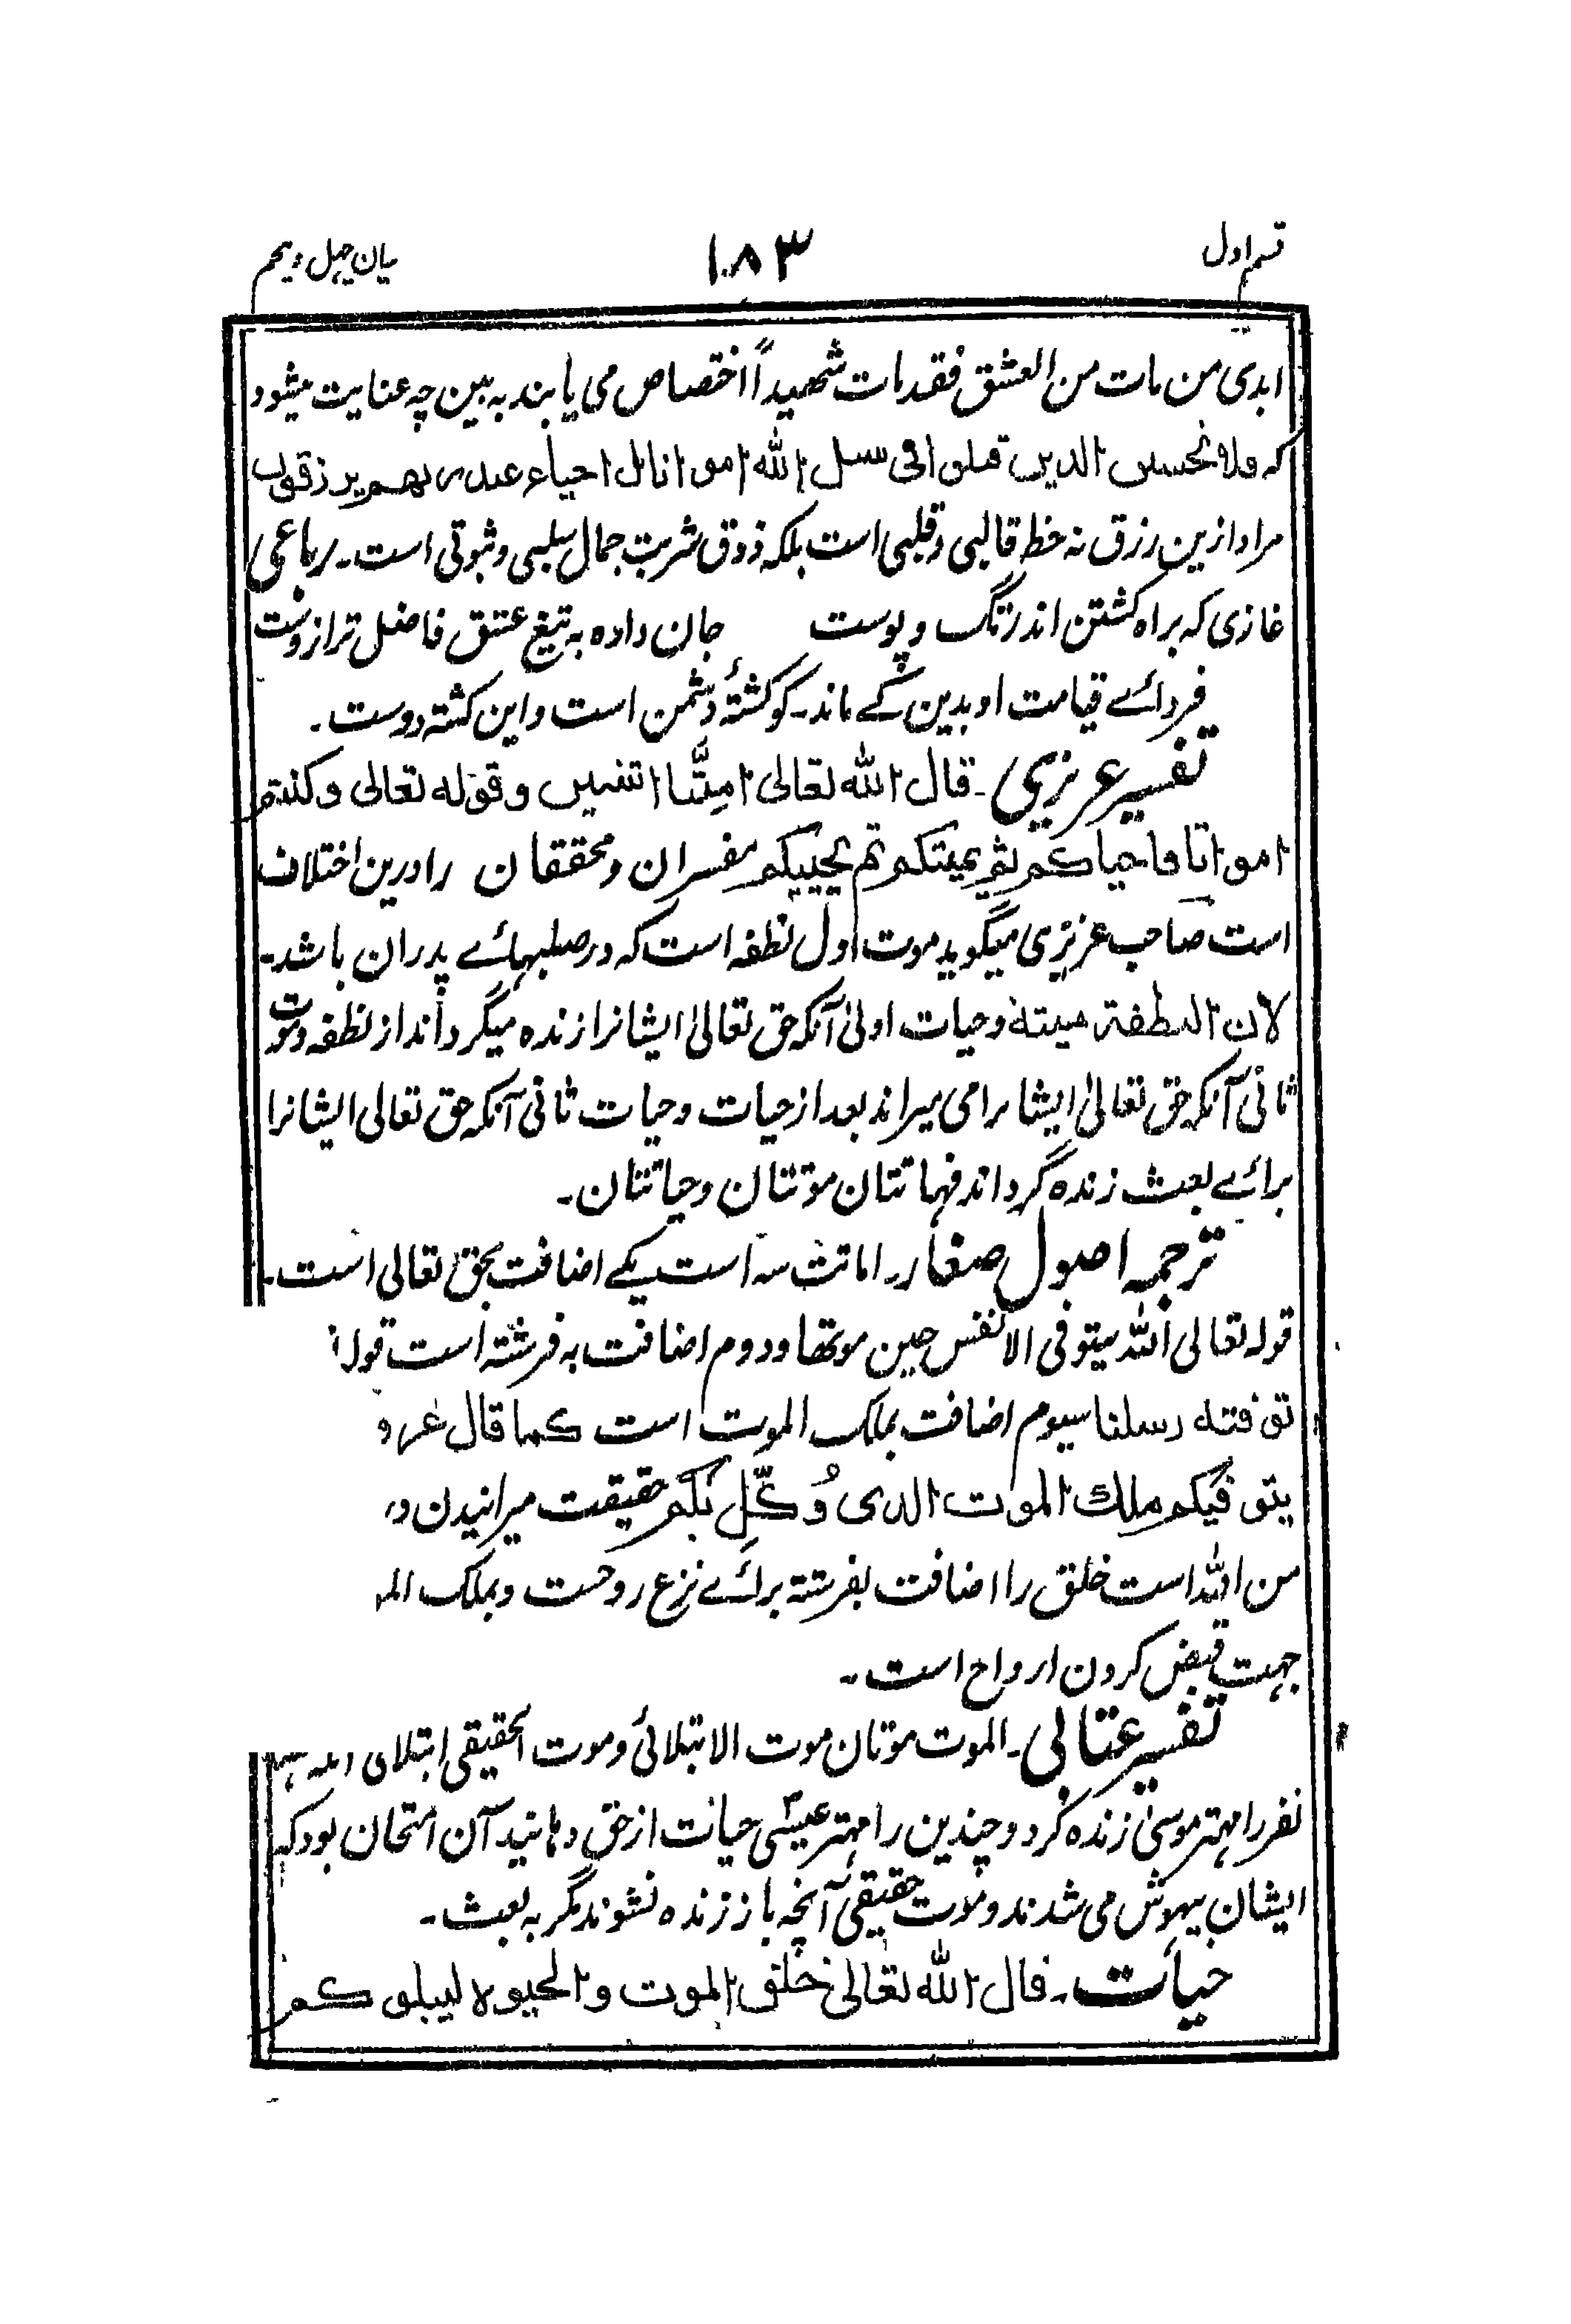 قسم اول
۱۸۳
بیان چهل و یکم
ابدی من مات من العشق فقد مات شهیداً اختصاص می یابند به بین چه عنایت میشود
که ولا تحسبن الذین قتلوا فی سبیل الله امواتا بل احیاء عند ربهم یرزقون
مراد ازین رزق نه حظ قالبی و قلبی است بلکه ذوق شربت جمال سلبی و ثبوتی است۔ رباعی
غازی که براه کشتن اندر تگ و پوست جان داده به تیغ عشق فاضل تر ازوست
فردائے قیامت او بدین کے ماند۔ کو کشتۂ دشمن است و این کشته دوست۔
تفسیر عزیزی۔ قال الله تعالی امتَّنا اثنتین و قوله تعالی وکنتم
امواتا فاحیاکم ثم یمیتکم ثم یحییکم مفسران و محققان را درین اختلاف
است صاحب عزیزی میگوید موت اول نطفه است که در صلبهائے پدران باشد۔
لان النطفة میتة و حیات اولیٰ آنکه حق تعالیٰ ایشانرا زنده میگرداند از نطفه و موت
ثانی آنکه حق تعالیٰ ایشانرا می میراند بعد از حیات و حیات ثانی آنکه حق تعالی ایشانرا
برائے بعث زنده گرداند فهاتان موتتان و حیاتان۔
ترجمه اصول صغار۔ اماتت سه است یکے اضافت بحق تعالی است۔
قوله تعالی الله یتوفی الانفس حین موتها و دوم اضافت به فرشته است قوله
توفته رسلنا سیوم اضافت بملک الموت است کما قال عز و
یتوفیکم ملك الموت الذی وُکِّل بکم حقیقت میرانیدن
من الله است خلق را اضافت بفرشته برائے نزع روحست و بملک
جهت قبض کردن ارواح است۔
تفسیر عتابی۔ الموت موتان موت الابتلائی و موت الحقیقی ابتلای
نفر را مهتر موسیٰ زنده کرد و چندین را مهتر عیسیٰ حیات از حق دهانید آن امتحان بود که
ایشان بیهوش می شدند و موت حقیقی آنچه باز زنده نشوند مگر به بعث۔
حیات۔ قال الله تعالی خلق الموت والحیوة لیبلوکم